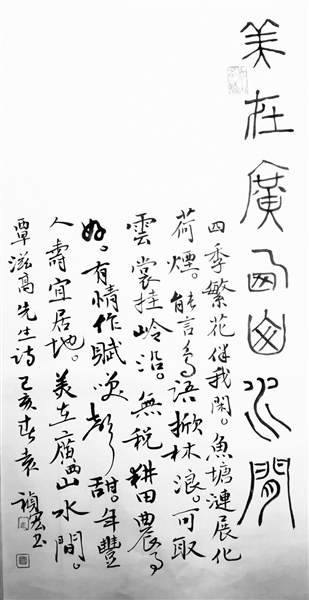 美在廣西山水間
四季繁花伴我閑。魚塘漣展化
荷煙。能言鳥語掀林浪。可取
雲裳挂嶺沿。無税耕田農事
好。有情作賦咲聲甜。年豐
人壽宜居地。美在廣西山水間。
覃滋高先生詩 己亥春 袁
禎宏书